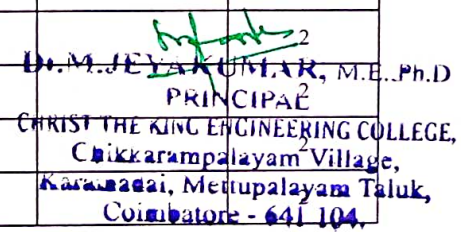 2
Dr.M.JEYAKUMAR, M.E.,Ph.D
PRINCIPAL
2
CHRIST THE KING ENGINEERING COLLEGE,
Chikkarampalayam Village,
2
Karamadai, Mettupalayam Taluk,
2
Coimbatore - 641 104.